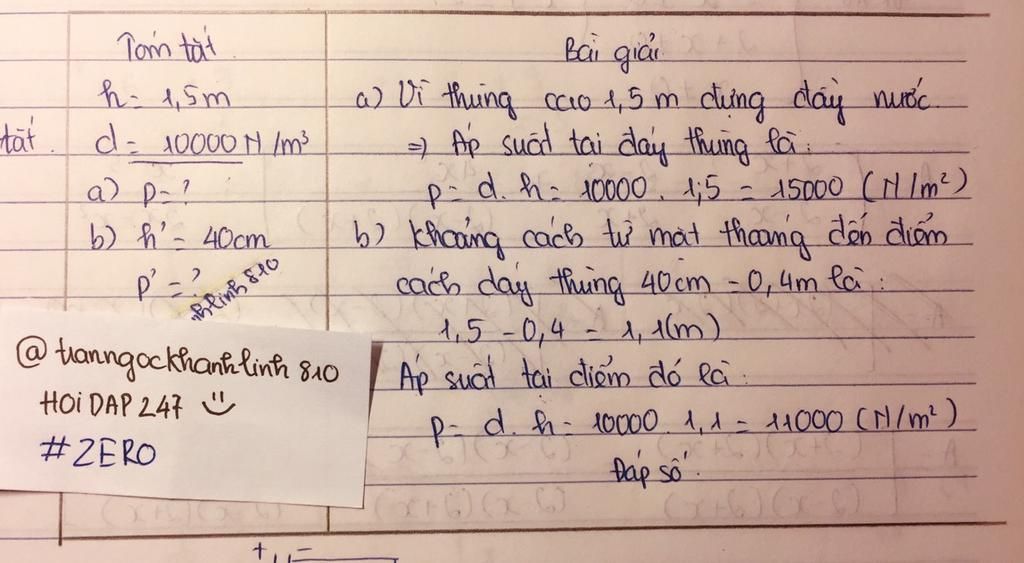 Tóm tắt
h = 1,5m
tắt. d = 10000 N/m³
a) p = ?
b) h' = 40cm
p' = ?
khanhlinh 810
@tranngockhanhlinh810
HOIDAP247
#ZERO
Bài giải
a) Vì thùng cao 1,5 m đựng đầy nước
=> Áp suất tại đáy thùng là:
p = d.h = 10000 . 1,5 = 15000 (N/m²)
b) Khoảng cách từ mặt thoáng đến điểm
cách đáy thùng 40cm = 0,4m là:
1,5 - 0,4 = 1,1(m)
Áp suất tại điểm đó là:
p = d.h = 10000 . 1,1 = 11000 (N/m²)
Đáp số: